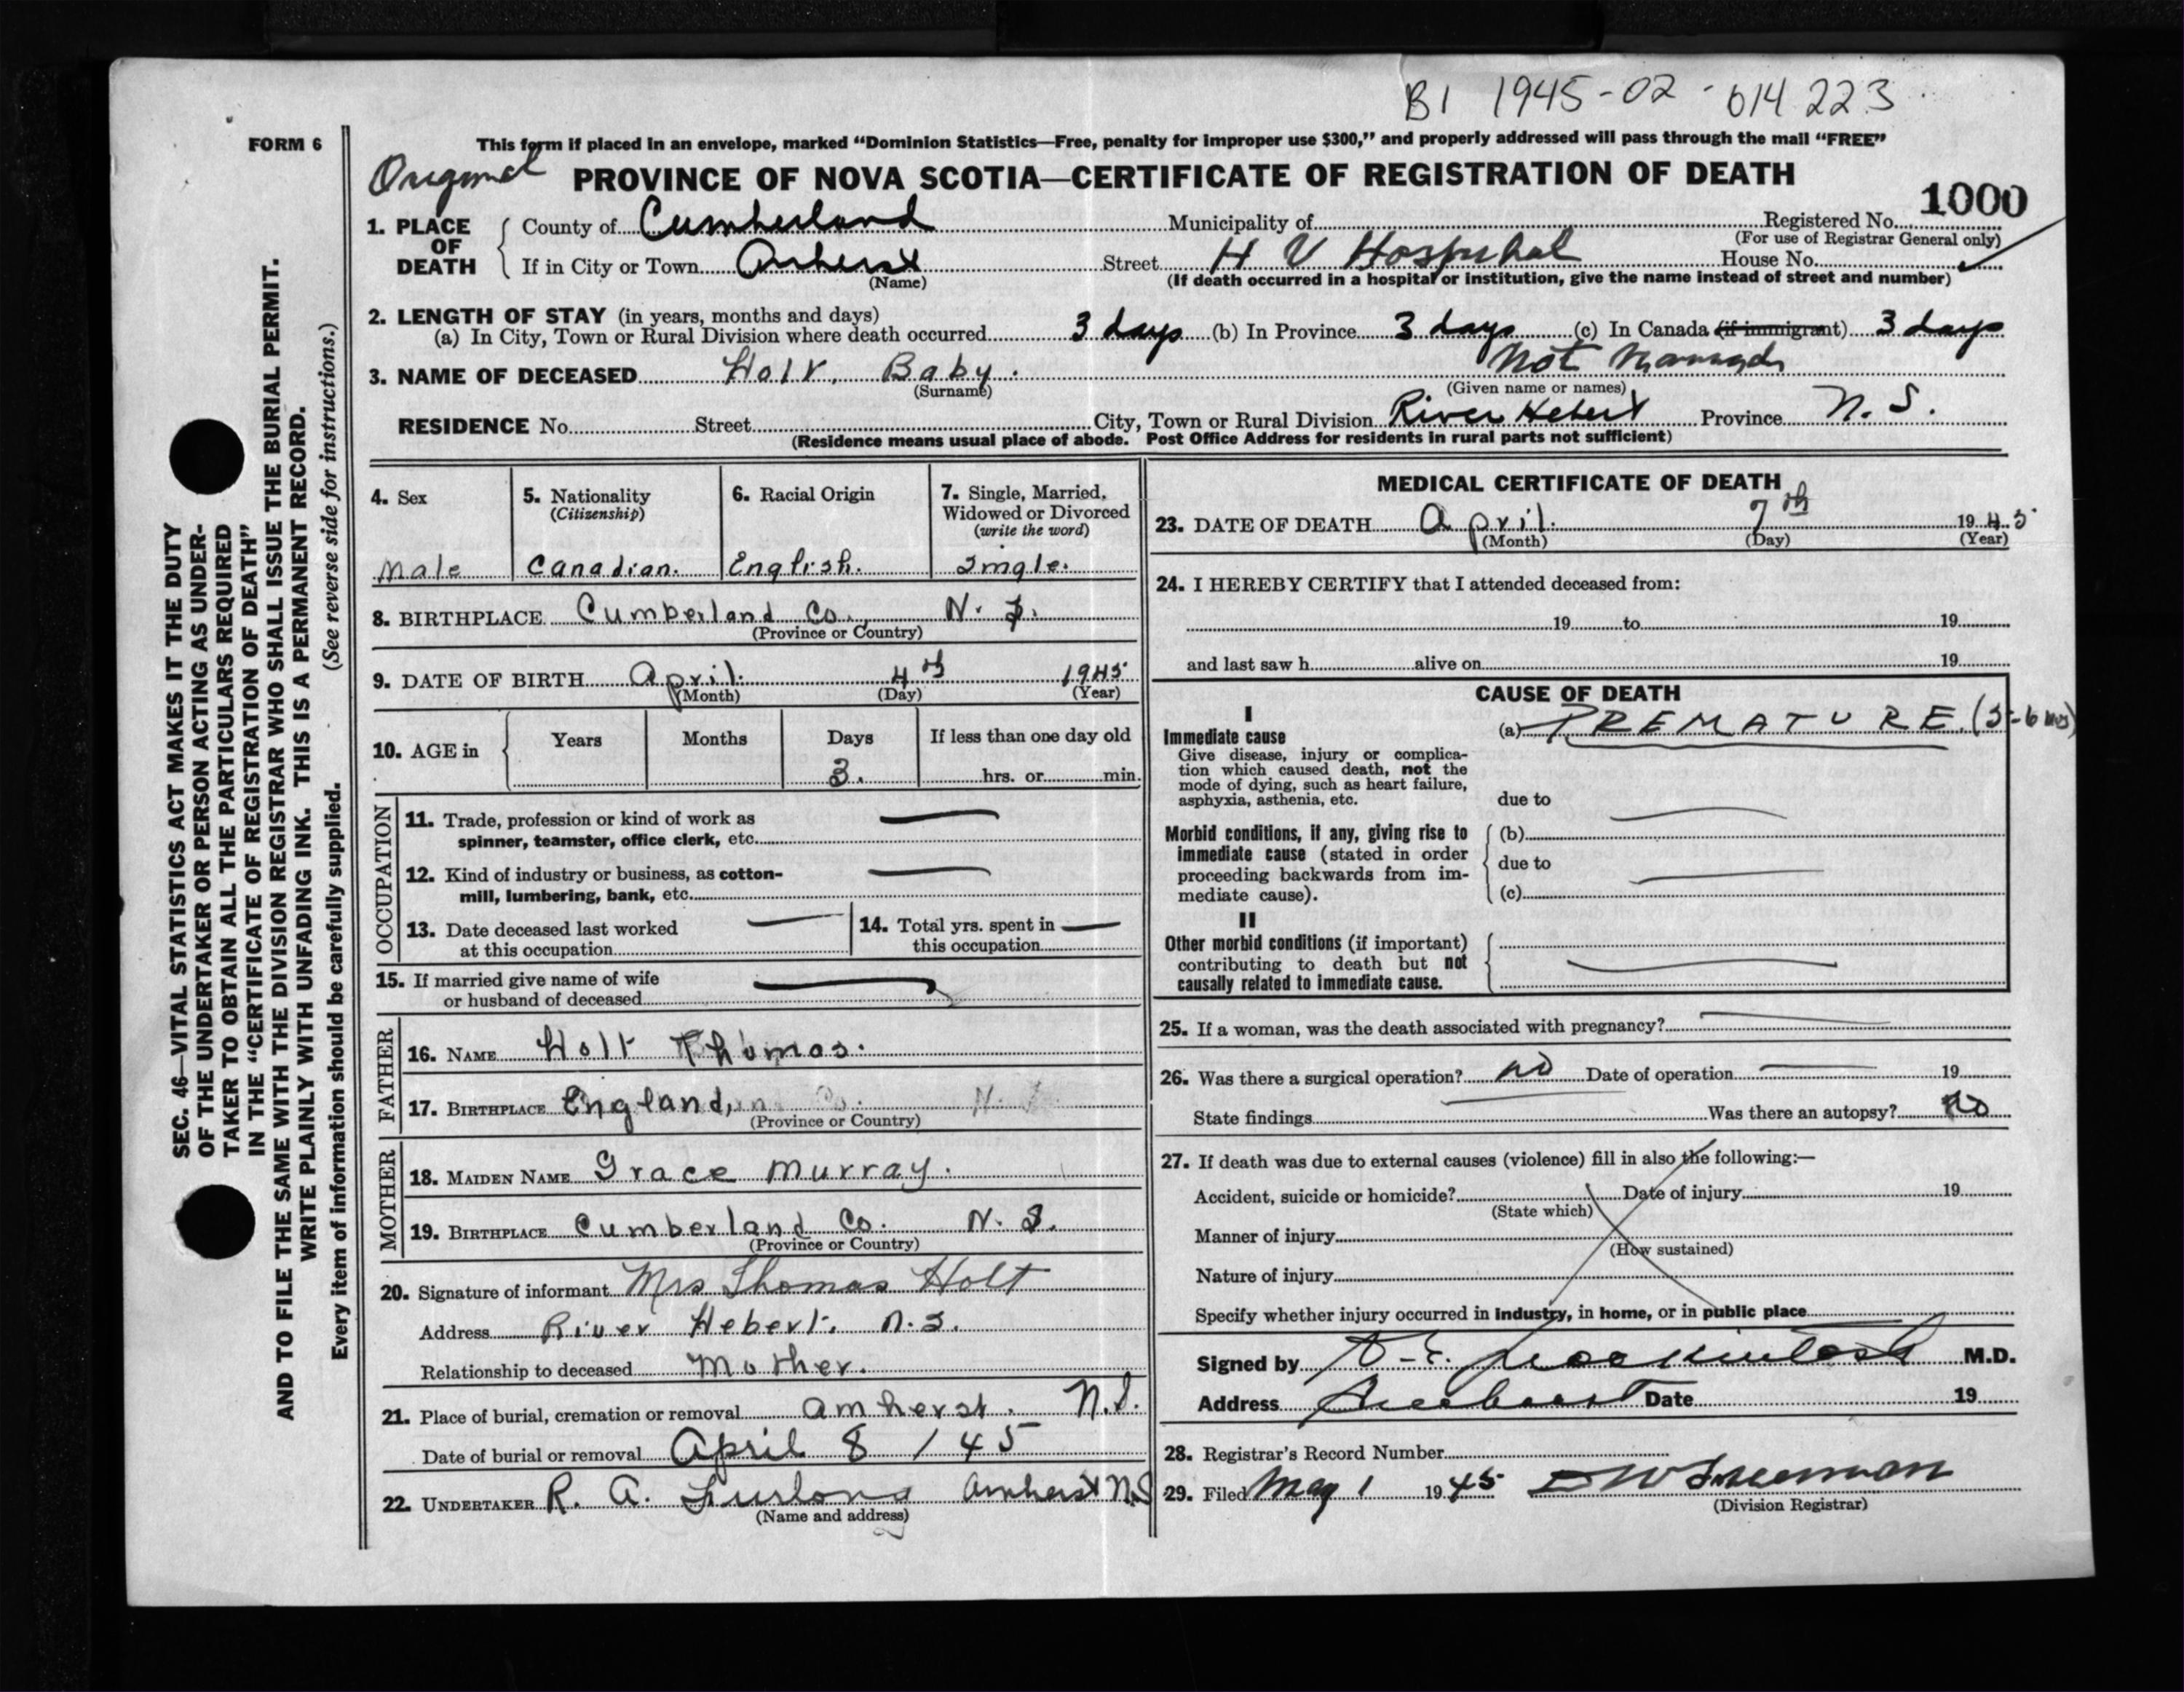 B1 1945-02-014223
FORM 6
This form if placed in an envelope, marked "Dominion Statistics—Free, penalty for improper use $300," and properly addressed will pass through the mail "FREE"
Original PROVINCE OF NOVA SCOTIA—CERTIFICATE OF REGISTRATION OF DEATH
1000
1. PLACE OF DEATH { County of Cumberland Municipality of Registered No.
(For use of Registrar General only)
If in City or Town Amherst Street H V Hospital House No.
(Name) (If death occurred in a hospital or institution, give the name instead of street and number)
2. LENGTH OF STAY (in years, months and days)
(a) In City, Town or Rural Division where death occurred 3 days (b) In Province 3 days (c) In Canada (if immigrant) 3 days
3. NAME OF DECEASED Holt, Baby. Not Named
(Surname) (Given name or names)
RESIDENCE No. Street City, Town or Rural Division River Hebert Province N.S.
(Residence means usual place of abode. Post Office Address for residents in rural parts not sufficient)
4. Sex
Male
5. Nationality
(Citizenship)
Canadian.
6. Racial Origin
English.
7. Single, Married,
Widowed or Divorced
(write the word)
Single.
8. BIRTHPLACE Cumberland Co., N. S.
(Province or Country)
9. DATE OF BIRTH April 4th 1945
(Month) (Day) (Year)
10. AGE in { Years Months Days If less than one day old
3. hrs. or min.
OCCUPATION
11. Trade, profession or kind of work as
spinner, teamster, office clerk, etc. —
12. Kind of industry or business, as cotton-
mill, lumbering, bank, etc. —
13. Date deceased last worked
at this occupation —
14. Total yrs. spent in
this occupation —
15. If married give name of wife
or husband of deceased —
FATHER
16. NAME Holt Thomas.
17. BIRTHPLACE England,
(Province or Country)
MOTHER
18. MAIDEN NAME Grace Murray.
19. BIRTHPLACE Cumberland Co. N. S.
(Province or Country)
20. Signature of informant Mrs Thomas Holt
Address River Hebert, N.S.
Relationship to deceased Mother.
21. Place of burial, cremation or removal Amherst. N.S.
Date of burial or removal April 8 / 45
22. UNDERTAKER R. A. Furlong Amherst N.S
(Name and address)
MEDICAL CERTIFICATE OF DEATH
23. DATE OF DEATH April 7th 1945
(Month) (Day) (Year)
24. I HEREBY CERTIFY that I attended deceased from:
19 to 19
and last saw h alive on 19
CAUSE OF DEATH
I
Immediate cause
Give disease, injury or complica-
tion which caused death, not the
mode of dying, such as heart failure,
asphyxia, asthenia, etc.
(a) PREMATURE (5-6 mos)
due to —
Morbid conditions, if any, giving rise to
immediate cause (stated in order
proceeding backwards from im-
mediate cause).
(b)
due to —
(c)
II
Other morbid conditions (if important)
contributing to death but not
causally related to immediate cause. —
25. If a woman, was the death associated with pregnancy? —
26. Was there a surgical operation? no Date of operation — 19
State findings Was there an autopsy? no
27. If death was due to external causes (violence) fill in also the following:—
Accident, suicide or homicide? Date of injury 19
(State which)
Manner of injury
(How sustained)
Nature of injury
Specify whether injury occurred in industry, in home, or in public place
Signed by M.D.
Address Amherst Date 19
28. Registrar's Record Number
29. Filed May 1 1945
(Division Registrar)
SEC. 46—VITAL STATISTICS ACT MAKES IT THE DUTY
OF THE UNDERTAKER OR PERSON ACTING AS UNDER-
TAKER TO OBTAIN ALL THE PARTICULARS REQUIRED
IN THE "CERTIFICATE OF REGISTRATION OF DEATH"
AND TO FILE THE SAME WITH THE DIVISION REGISTRAR WHO SHALL ISSUE THE BURIAL PERMIT.
WRITE PLAINLY WITH UNFADING INK. THIS IS A PERMANENT RECORD.
Every item of information should be carefully supplied. (See reverse side for instructions.)